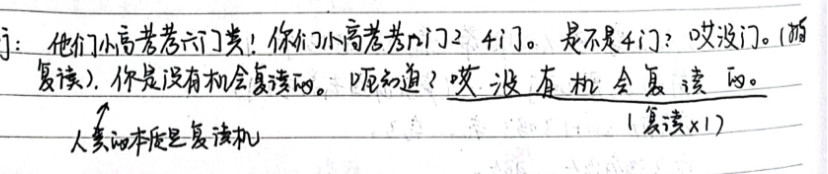 : 他们小高考考六门类！你们小高考考几门？4门。是不是4门？哎没门。(指
复读). 你是没有机会复读的。晓知道？哎 没 有 机 会 复 读 的。
(复读×1)
人类的本质是复读机